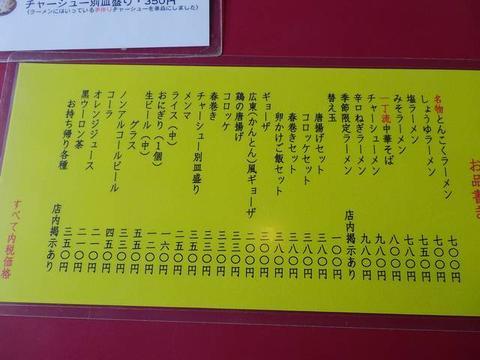 チャーシュー別皿盛り・350円
(ラーメンにはいっている手作りチャーシューを単品にしました)
お品書き
名物とんこくラーメン 七〇〇円
しょうゆラーメン 七〇〇円
塩ラーメン 七五〇円
みそラーメン
一丁流中華そば 八〇〇円
チャーシューメン 九八〇円
辛口ねぎラーメン 九八〇円
季節限定ラーメン 店内掲示あり
替え玉 一〇〇円
唐揚げセット 三五〇円
コロッケセット 三〇〇円
春巻きセット 三〇〇円
卵かけご飯セット
ギョーザ
広東(かんとん)風ギョーザ
鶏の唐揚げ
コロッケ
春巻き
チャーシュー別皿盛り 三五〇円
メンマ
ライス(中) 一六〇円
おにぎり(1個) 一二〇円
生ビール(中) 五五〇円
グラス 三五〇円
ノンアルコールビール 四五〇円
コーラ 二一〇円
オレンジジュース 二一〇円
黒ウーロン茶 三五〇円
お持ち帰り各種 店内掲示あり
すべて内税価格